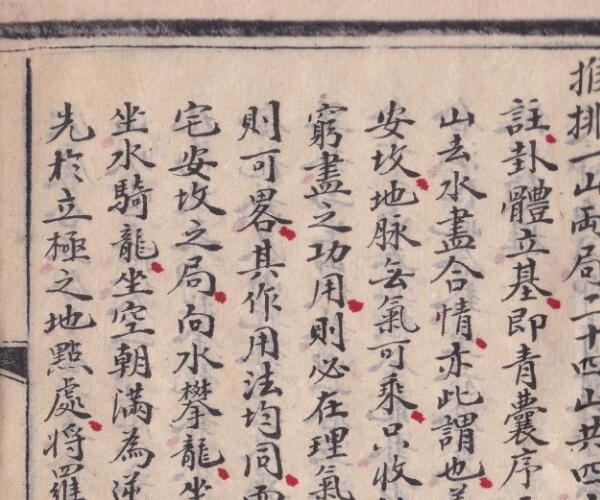 推排一山両局二十四山共四
註卦體立基即青囊序
山去水盡合情亦此謂也
安坟地脉無氣可乘只收
窮盡之功用則必在理氣
則可畧其作用法均同而
宅安坟之局向水攀龍坐
坐水騎龍坐空朝滿為逆
先於立極之地點處将羅